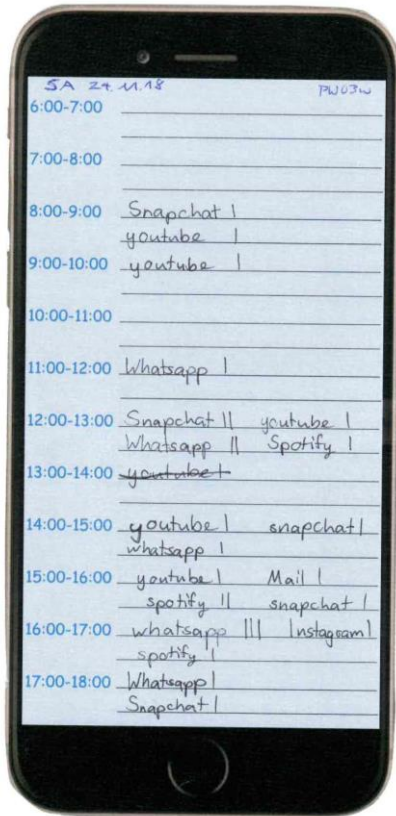 SA 24.11.18 PW03W
6:00-7:00
7:00-8:00
8:00-9:00 Snapchat |
youtube |
9:00-10:00 youtube |
10:00-11:00
11:00-12:00 Whatsapp |
12:00-13:00 Snapchat || youtube |
Whatsapp || Spotify |
13:00-14:00 youtube |
14:00-15:00 youtube | snapchat |
whatsapp |
15:00-16:00 youtube | Mail |
spotify || snapchat |
16:00-17:00 whatsapp ||| Instagram |
spotify |
17:00-18:00 Whatsapp |
Snapchat |